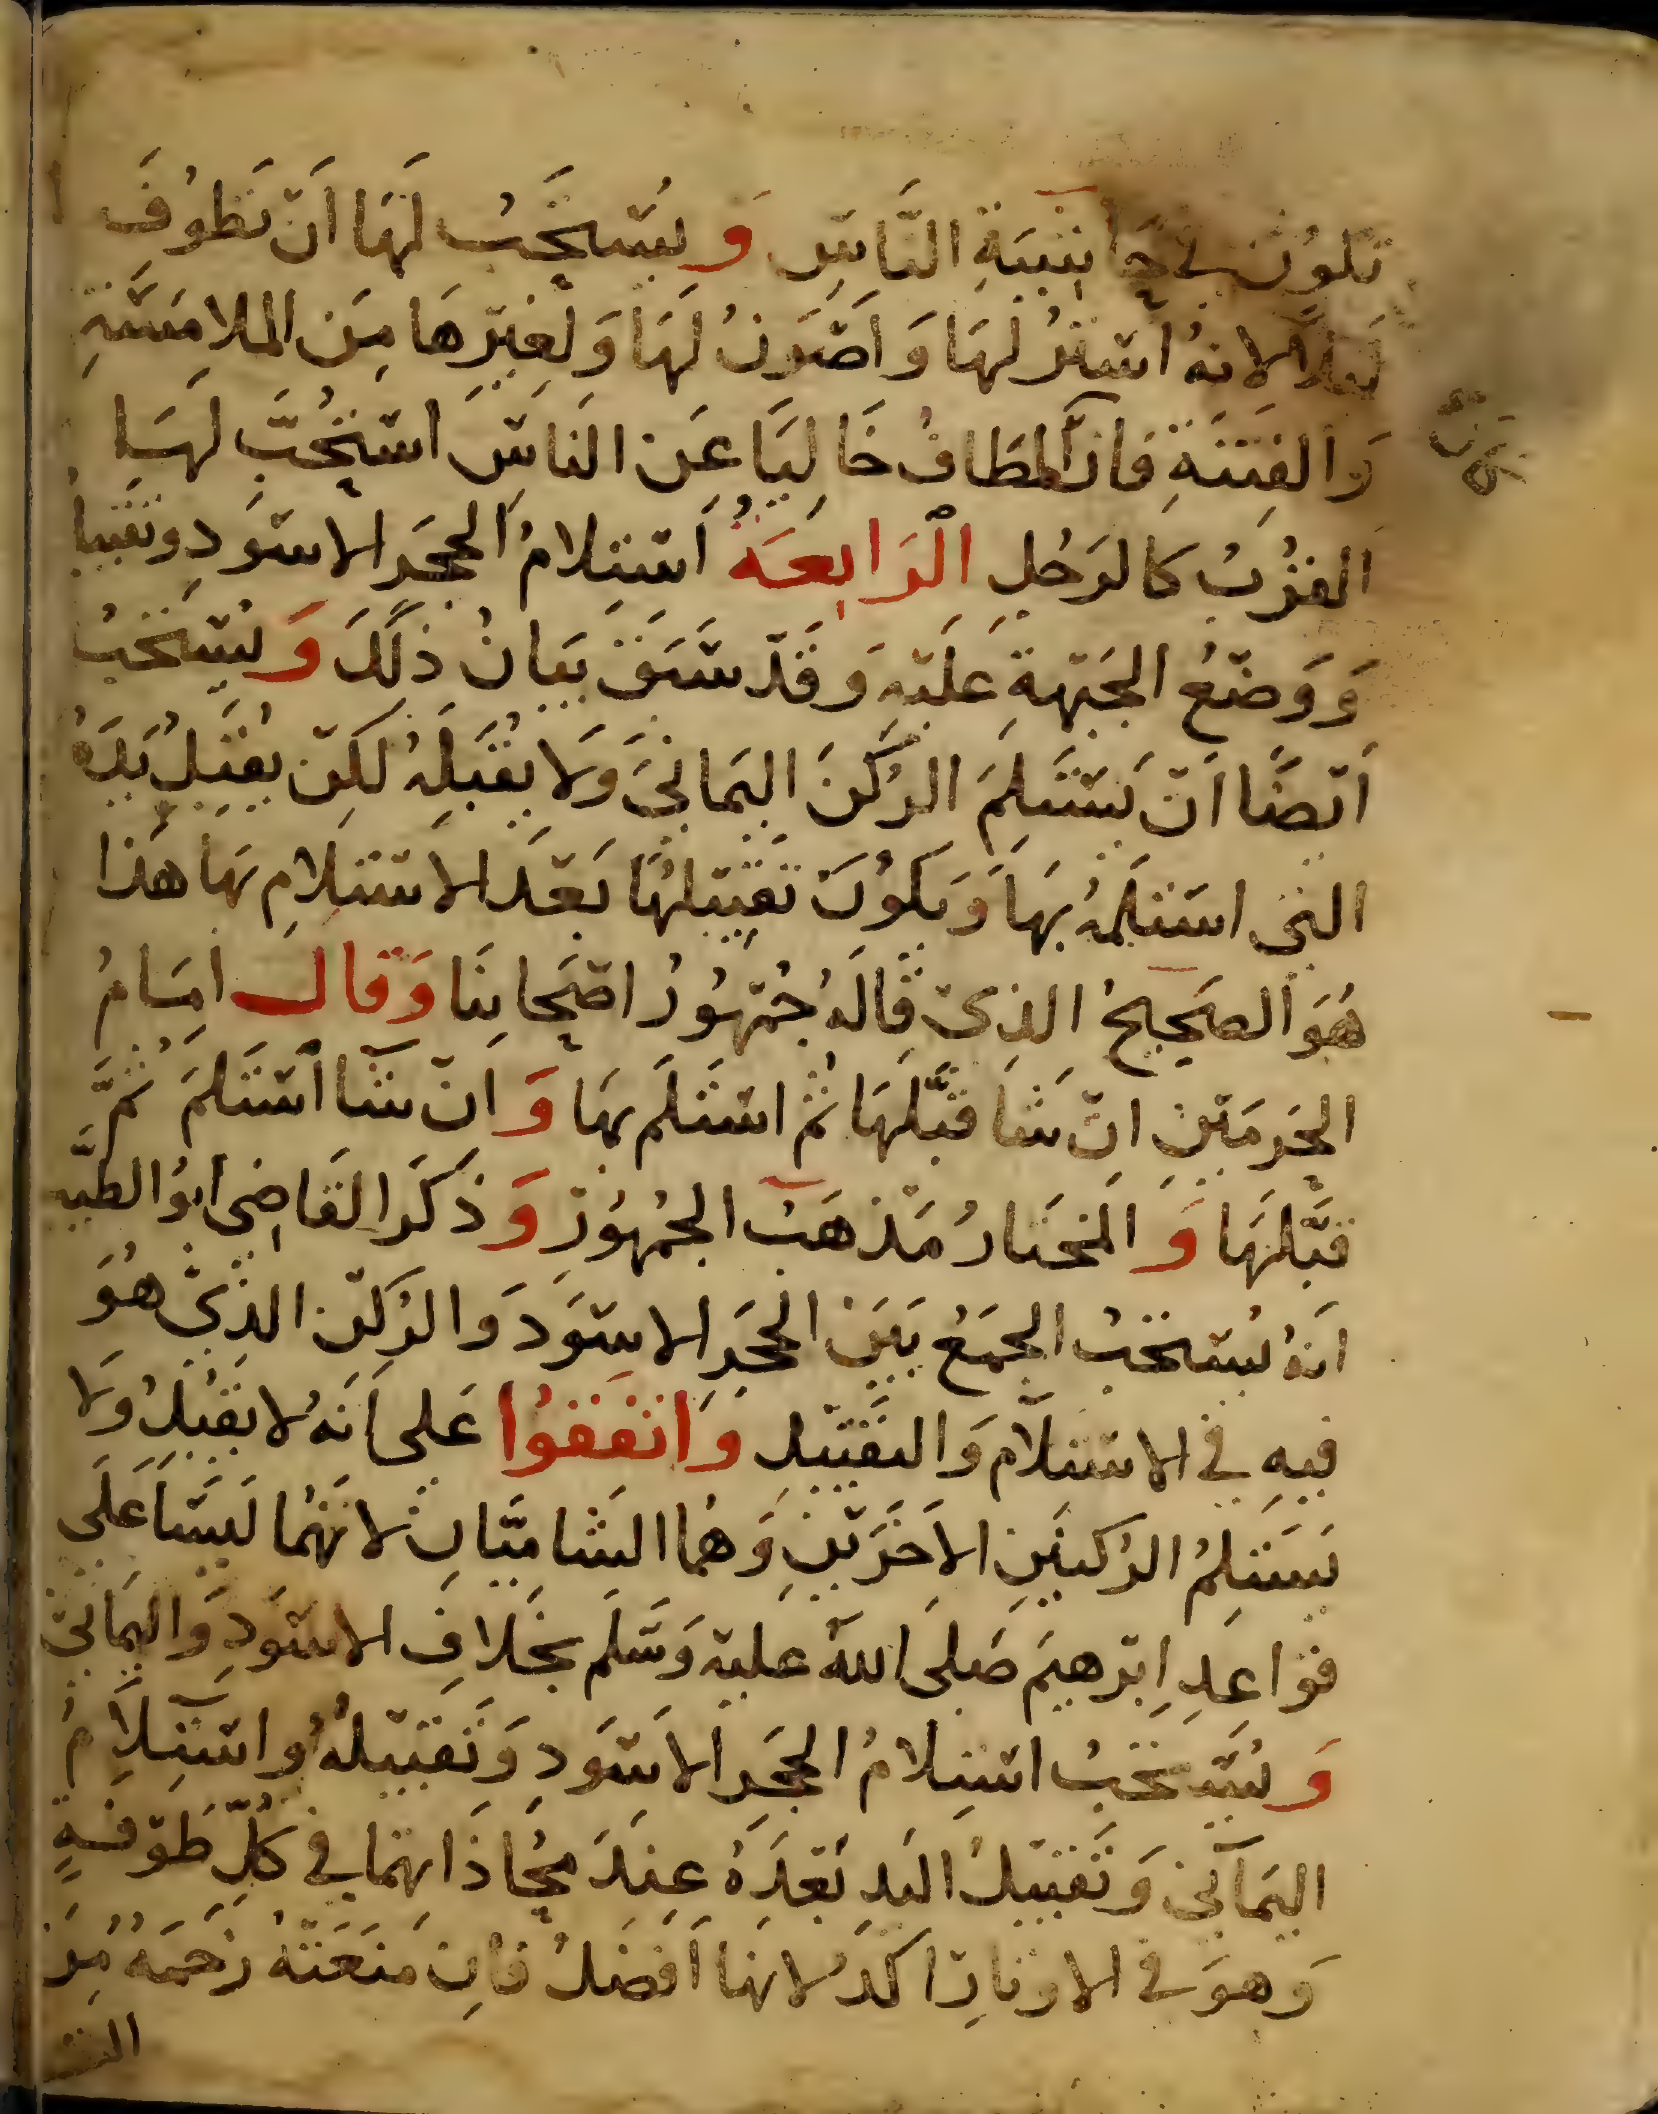 تكون في حانبية الناس ويستحب لها ان تطوف
ليلا لانه استر لها واصون لها ولغيرها من الملامسة
والفتنة فان كان المطاف خاليا عن الناس استحب لها
القرب كالرجل الرابعة استلام الحجر الاسود وتقبيله
ووضع الجبهة عليه وقد سبق بيان ذلك ويستحب
ايضا ان يستلم الركن اليماني ولا يقبله لكن يقبل يده
التي استلمه بها ويكون تقبيلها بعد الاستلام بها هذا
هو الصحيح الذي قاله جمهور اصحابنا وقال امام
الحرمين ان شا قبلها ثم استلم بها وان شا استلم ثم
قبلها والمختار مذهب الجمهور وذكر القاضي ابو الطيب
انه يستحب الجمع بين الحجر الاسود والركن الذي هو
فيه في الاستلام والتقبيل واتفقوا على انه لا يقبل ولا
يستلم الركنين الاخرين وهما الشاميان لانهما ليسا على
قواعد ابرهيم صلى الله عليه وسلم بخلاف الاسود واليماني
ويستحب استلام الحجر الاسود وتقبيله واستلام
اليماني وتقبيل اليد بعده عند محاذاتهما في كل طوفة
وهو في الاوتار اكد لانها افضل فان منعته زحمة من